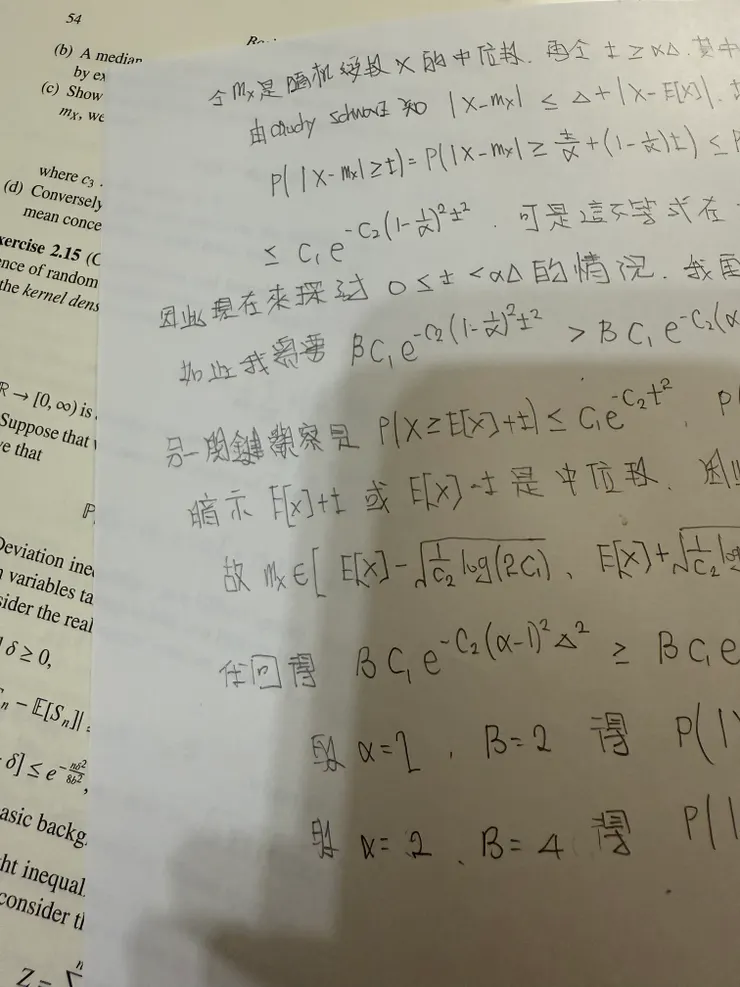 54
(b) A median
by ex
(c) Show
mX, we
where c3
(d) Conversely
mean conce
xercise 2.15 (C
ence of random
the kernel dens
R → [0, ∞) is
Suppose that
ve that
Deviation ine
n variables ta
sider the real
δ ≥ 0,
n − E[Sn]|
δ] ≤ e^{-nδ²/8b²},
asic backg
ht inequal
consider th
Z = ∑^n
令 mX 是隨机變数 X 的中位数. 再令 t ≥ αΔ. 其中
由 cauchy schwarz 知 |X−mX| ≤ Δ + |X−E[X]|.
P(|X−mX| ≥ t) = P(|X−mX| ≥ t/α + (1−1/α)t) ≤ P
≤ C₁e^{-C₂(1−1/α)²t²}. 可是這不等式在
因此現在來探討 0 ≤ t < αΔ 的情况. 我
如此我需要 BC₁e^{-C₂(1−1/α)²t²} > BC₁e^{-C₂(α
另一関鍵觀察是 P(X ≥ E[X]+t) ≤ C₁e^{-C₂t²}. P
暗示 E[X]+t 或 E[X]−t 是中位数. 因此
故 mX ∈ [E[X]−√(1/C₂ log(2C₁)、E[X]+√(1/C₂ log
BC₁e^{-C₂(α−1)²Δ²} ≥ BC₁e
取 α=1 、B=2 得 P(|X
取 α=2 、B=4 得 P(|